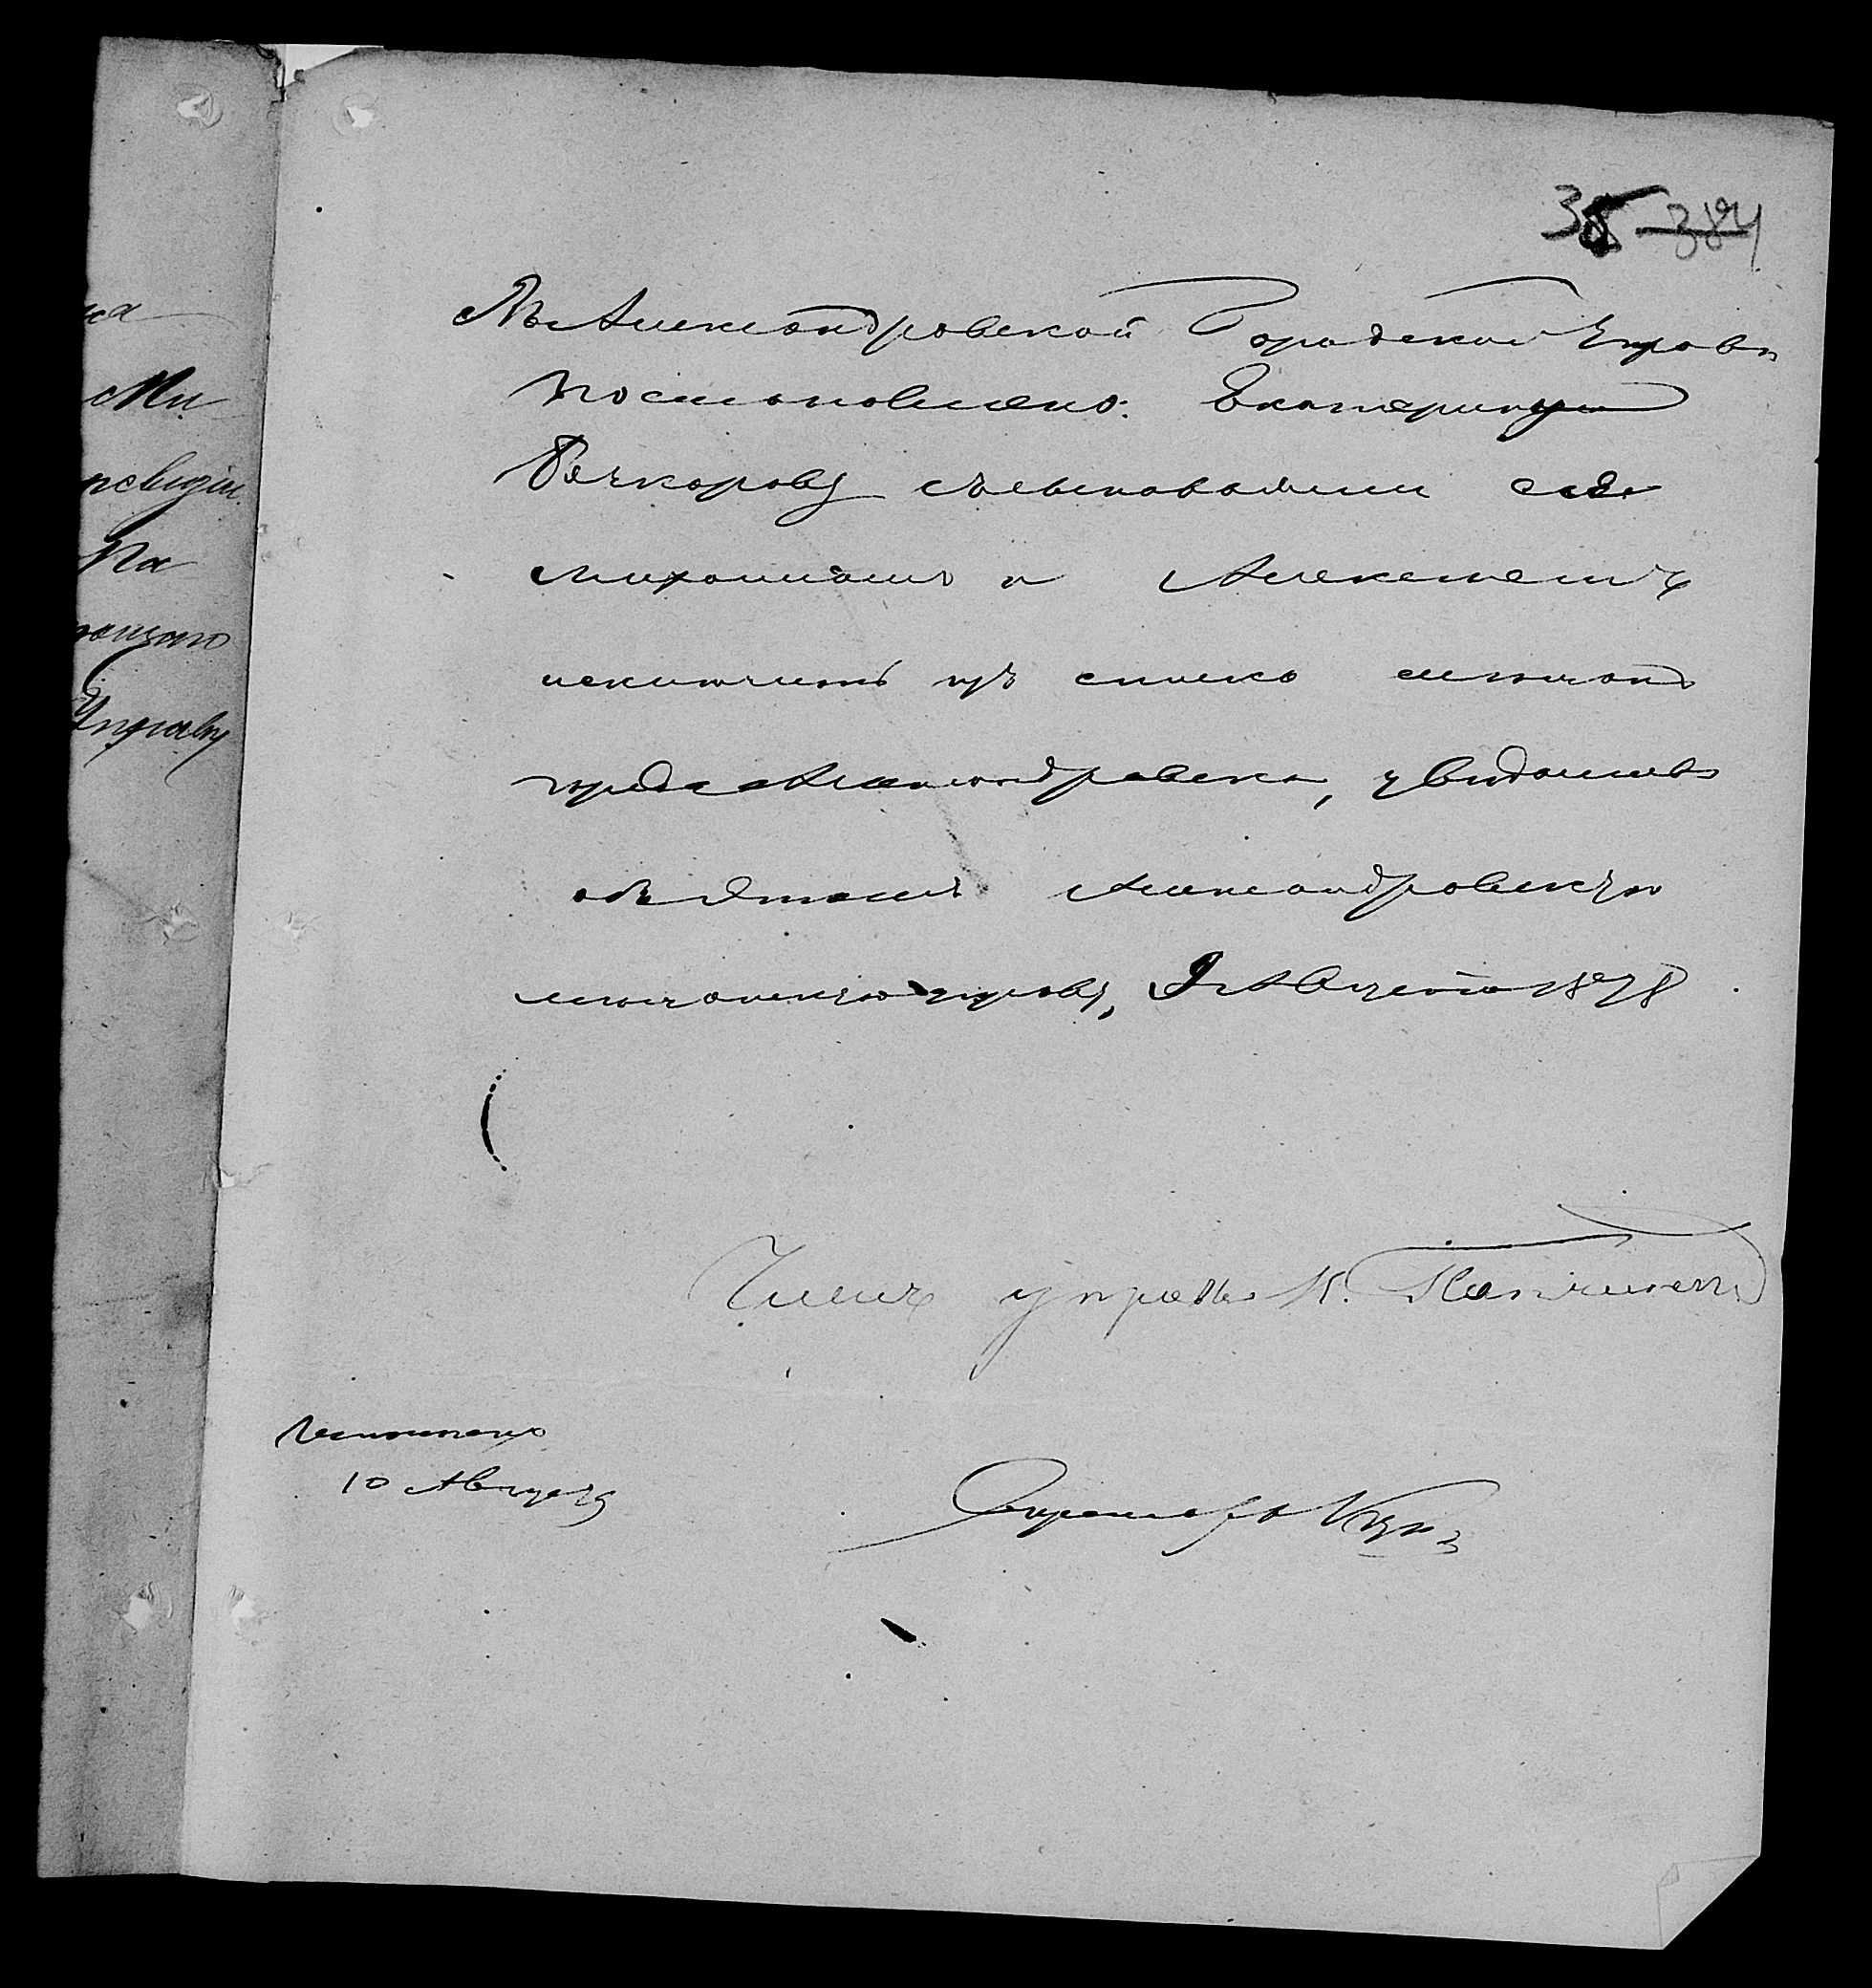 на
Ми
Па
Управу
38 384
Въ Александровской Городской Управѣ
постановлено: Екатерину
Бочкареву съ сыновьями ея
Михаиломъ и Алексѣемъ
исключить изъ списка мѣщанъ
города Александровска, увѣдомивъ
объ этомъ Александровскую
мѣщанскую управу, 9 Августа 1878
Членъ управы К.
Исполнено
10 Августа
Секретарь